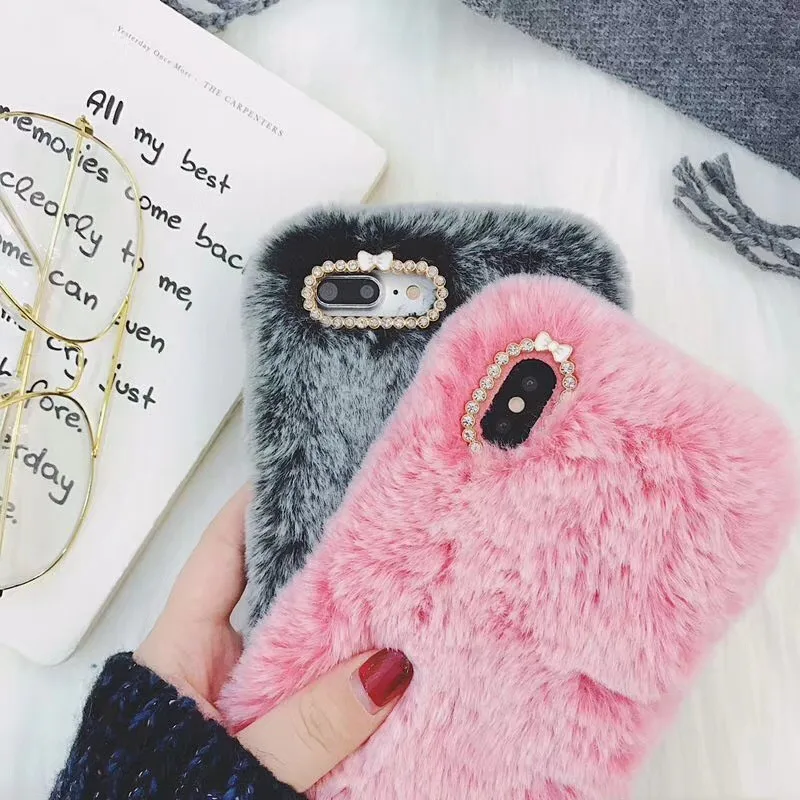 Yesterday Once More - THE CARPENTERS
All my best
memories come back
clearly to me,
ome can even
me cry just
fore.
erday
e.